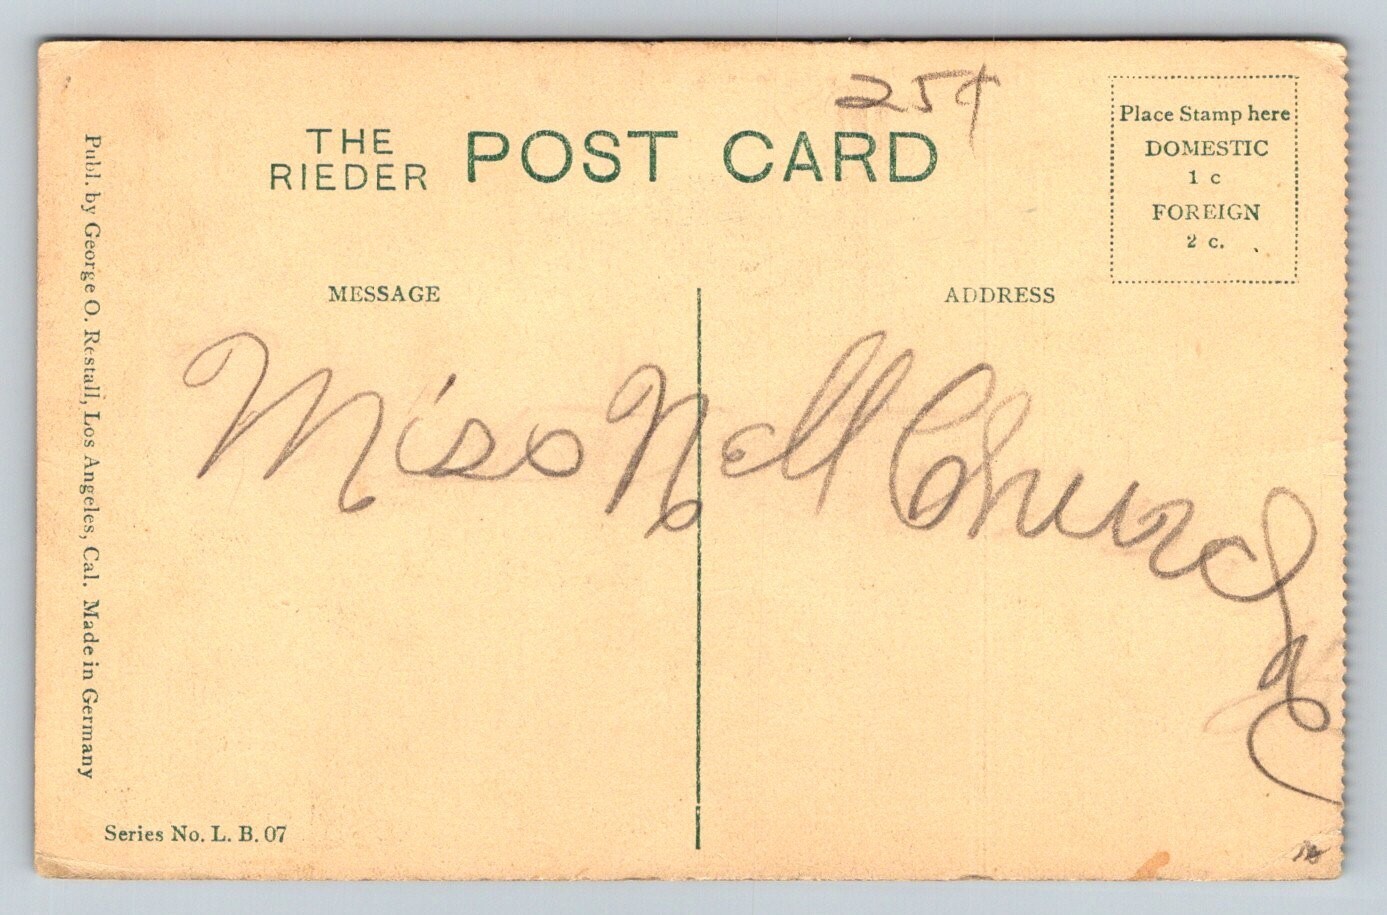 25¢
THE
RIEDER
POST CARD
Place Stamp here
DOMESTIC
1 c
FOREIGN
2 c.
MESSAGE
ADDRESS
Miss Nell Church
Publ. by George O. Restall, Los Angeles, Cal. Made in Germany
Series No. L. B. 07